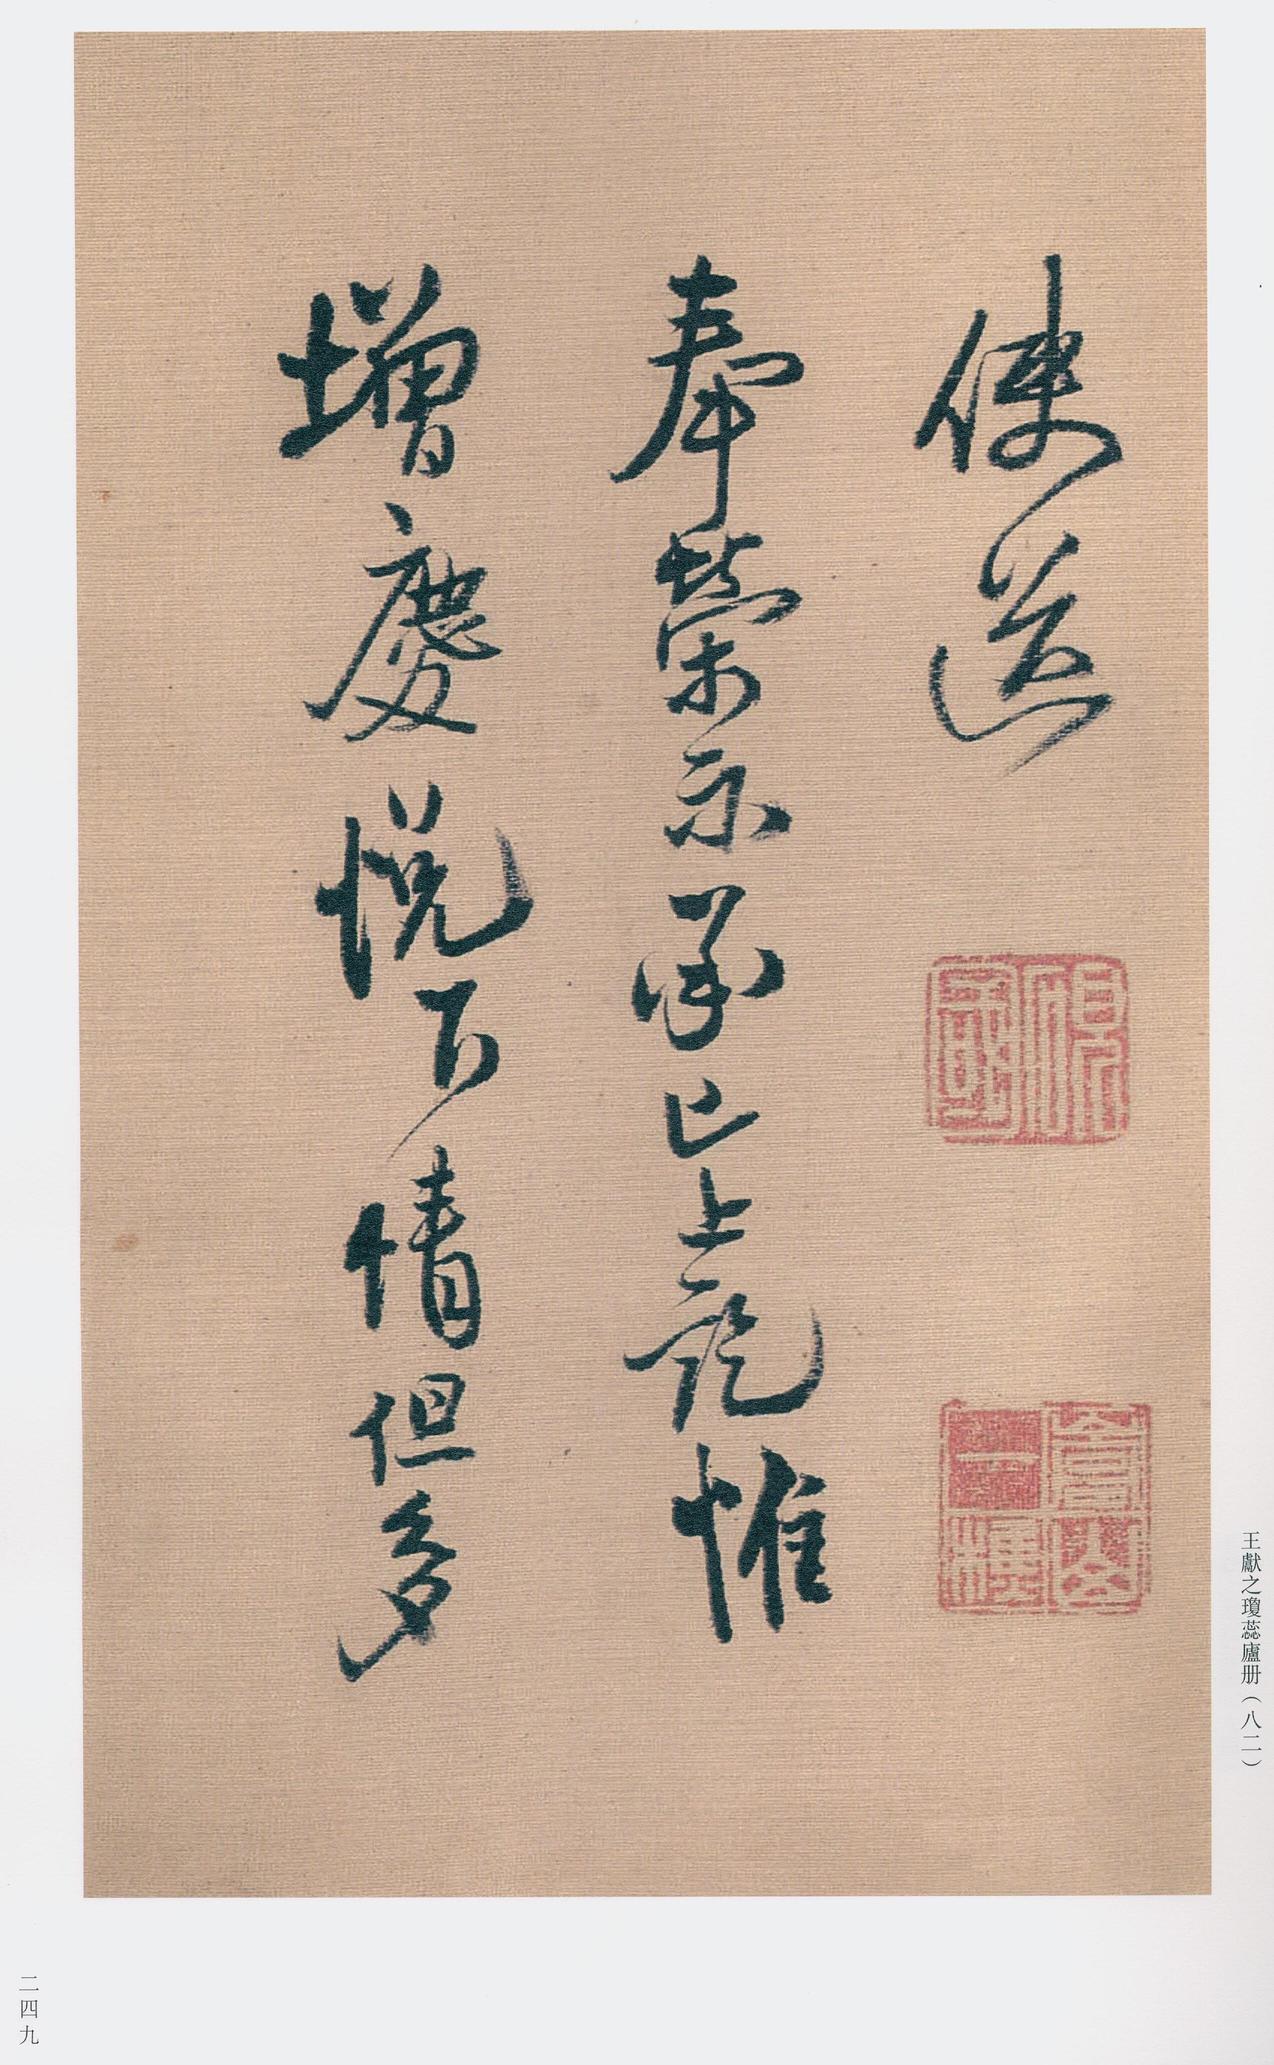 使送
奉榮示承已上訖惟
增慶悅下情但多
王獻之瓊蕊廬册（八二）
二四九